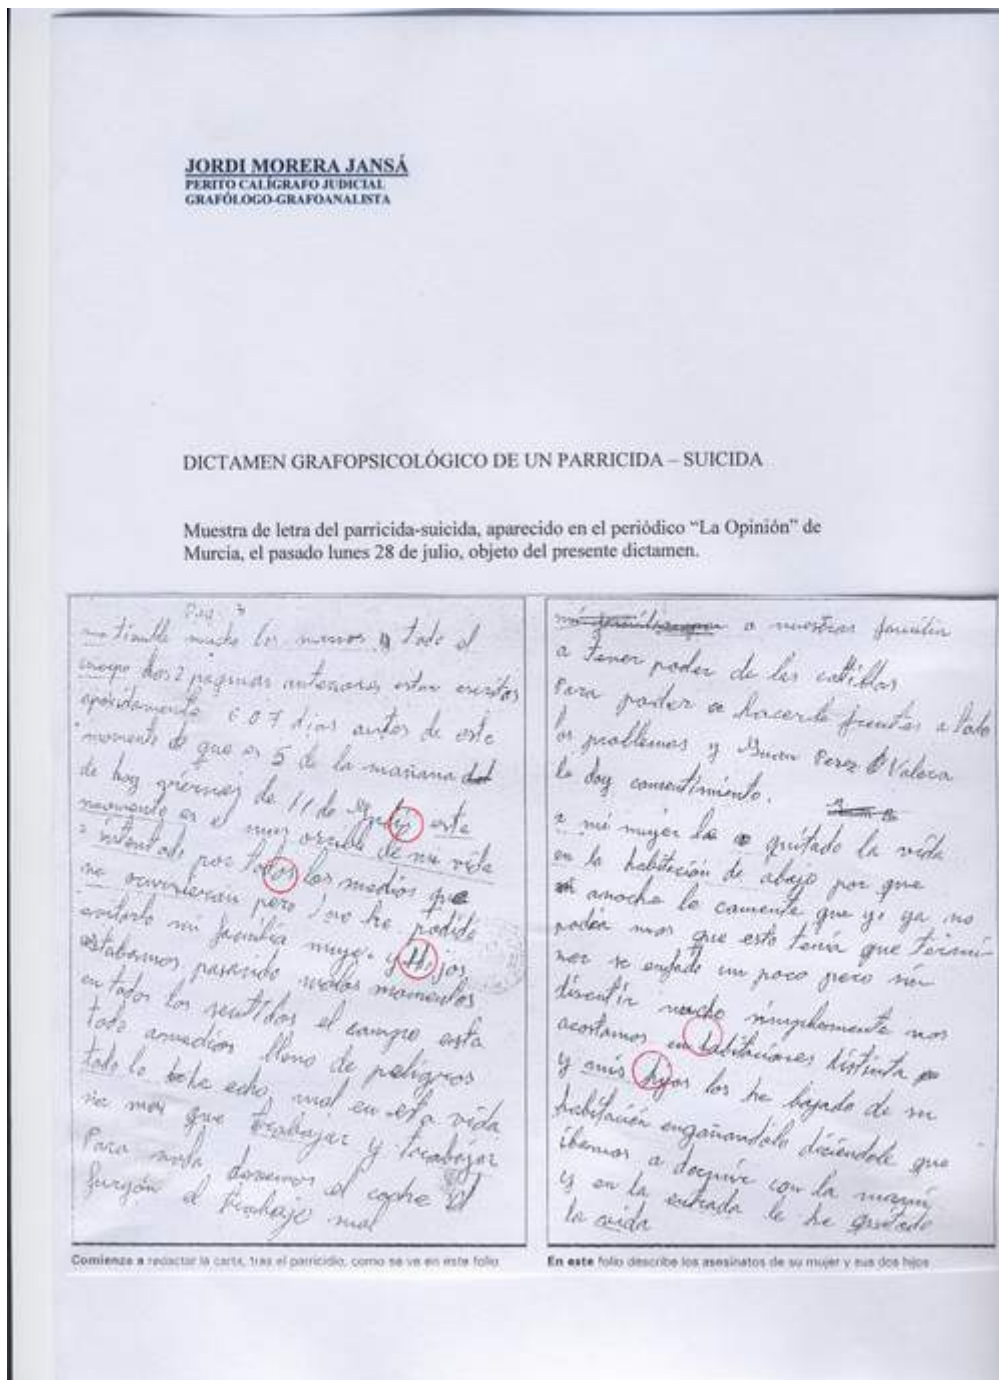 JORDI MORERA JANSÁ
PERITO CALÍGRAFO JUDICIAL
GRAFÓLOGO-GRAFOANALISTA
DICTAMEN GRAFOPSICOLÓGICO DE UN PARRICIDA – SUICIDA
Muestra de letra del parricida-suicida, aparecido en el periódico “La Opinión” de
Murcia, el pasado lunes 28 de julio, objeto del presente dictamen.
Pag. 3
me tiemble mucho las manos y todo el
cuerpo las 2 paginas anteriores estan escritos
6 o 7 dias antes de este
momento de que es 5 de la mañana
de hoy de 11 de este
momento es el muy orrible de mi vida
intentado por todos los medios que
no ocurrieran pero no he podido
evitarlo mi familia mujer y Hijos
estabamos pasando malos momentos
en todos los sentidos el campo esta
todo amedios lleno de peligros
todo lo echo mal en esta vida
no mas que trabajar y trabajar
Para nada el coche el
furgón el trabajo mal
Comienza a redactar la carta, tras el parricidio, como se ve en este folio
a nuestras familia
a tener poder de las
Para poder a hacerle frentes a todo
los problemas y Perez Valera
le doy consentimiento.
a mi mujer la e quitado la vida
en la habitación de abajo por que
anoche le comente que yo ya no
podia mas que esto tenia que termi
nar se enfado un poco pero sin
discutir mucho simplemente nos
acostamos en habitaciones distinta
y mis hijos los he bajado de su
habitación engañandolo diciendole que
ibamos a dormir con la mamá
y en la entrada le he quitado
la vida
En este folio describe los asesinatos de su mujer y sus dos hijos